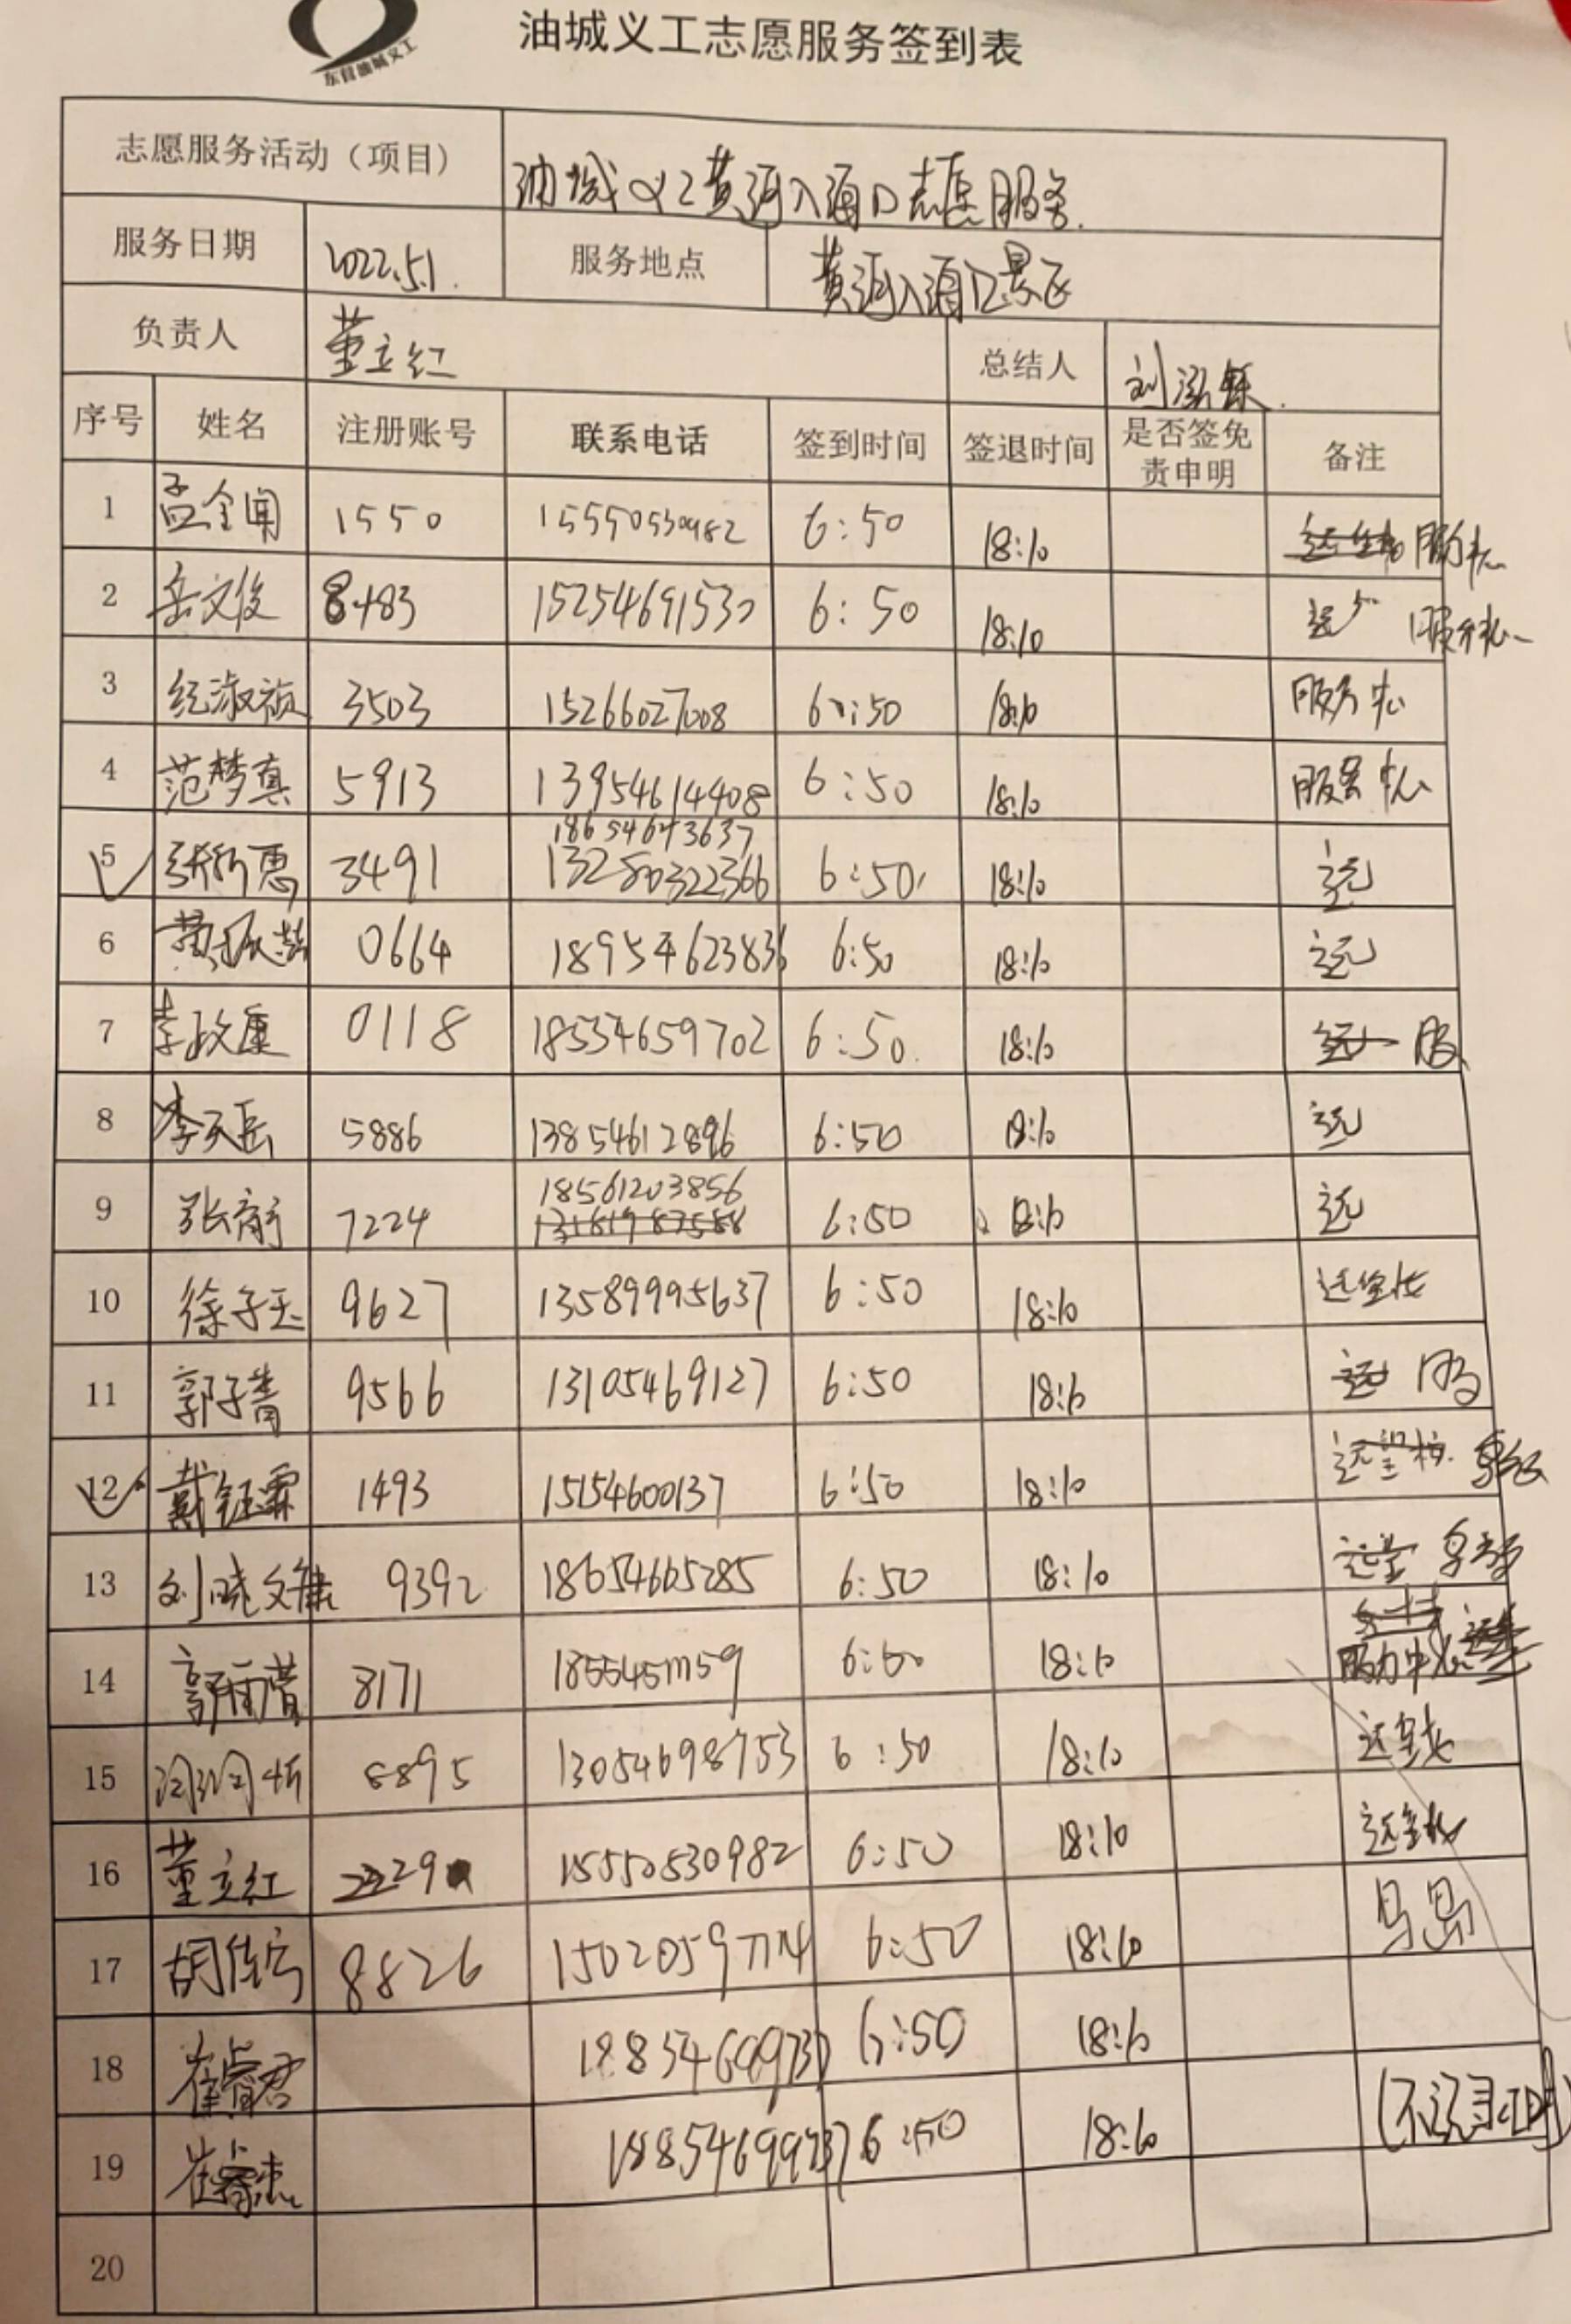 东营油城义工
油城义工志愿服务签到表
志愿服务活动（项目） 油城义工黄河入海口志愿服务.
服务日期 2022.5.1. 服务地点 黄河入海口景区
负责人 董立红 总结人
序号 姓名 注册账号 联系电话 签到时间 签退时间 是否签免责申明 备注
1 孟全闻 1550 15550530982 6:50 18:10 服务中心
2 岳文俊 8483 15254691530 6:50 18:10 服务中心
3 纪淑祯 3503 15266027008 6:50 18:10 服务中心
4 范梦真 5913 13954614408 6:50 18:10 服务中心
18654643637
5 3491 13280322366 6:50 18:10 远
6 0664 18954623836 6:50 18:10 远
7 李政康 0118 18554659702 6:50 18:10 服
8 李天岳 5886 13854612896 6:50 18:10 远
18561203856
9 7224 6:50 18:10 远
10 徐子玉 9627 13589995637 6:50 18:10
11 郭子菁 9566 13105469127 6:50 18:10 服
12 戴钰霖 1493 15154600137 6:50 18:10
13 刘晓文 9392 18654665285 6:50 18:10
14 郭雨萱 8171 6:50 18:10 服务中心
15 8895 13054698753 6:50 18:10
16 董立红 15550530982 6:50 18:10
17 8826 6:50 18:10 鸟岛
18 崔睿君 6:50 18:10
19 崔睿杰 6:50 18:10
20